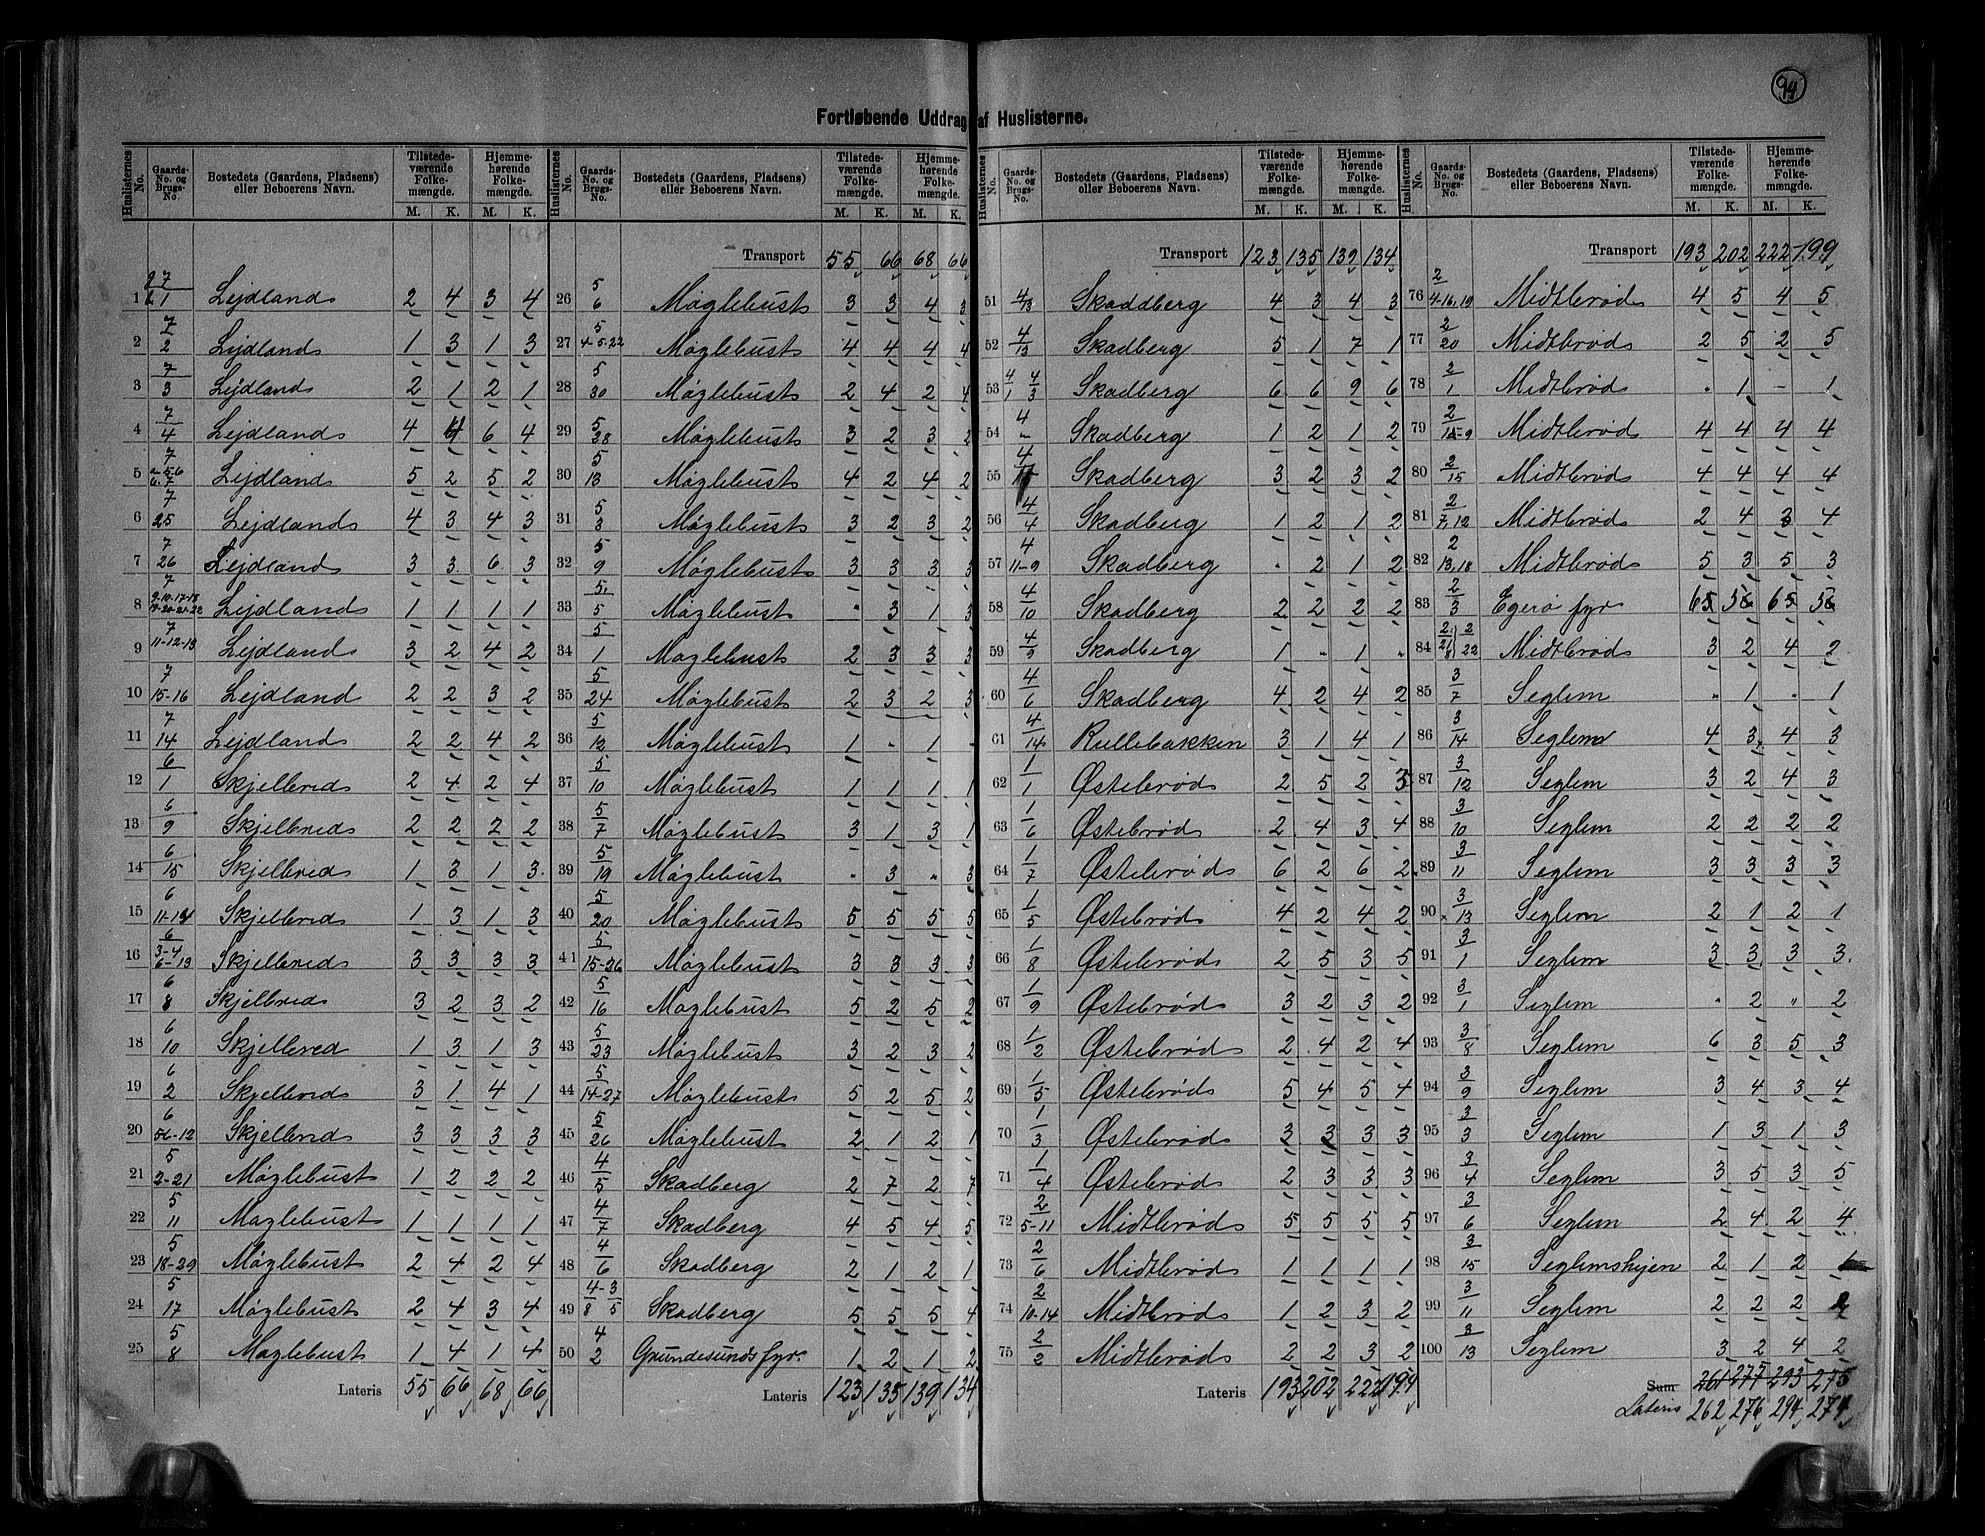 94
Fortløbende Uddrag af Huslisterne.
Huslisternes No. | Gaards-No. og Brugs-No. | Bostedets (Gaardens, Pladsens) eller Beboerens Navn. | Tilstedeværende Folkemængde. M. K. | Hjemmehørende Folkemængde. M. K.
1 Lejdland 2 4 3 4
2 7/2 Lejdland 1 3 1 3
3 7/3 Lejdland 2 1 2 1
4 7/4 Lejdland 4 4 6 4
5 Lejdland 5 2 5 2
6 7/25 Lejdland 4 3 4 3
7 7/26 Lejdland 3 3 6 3
8 7/9-10-17-18 19-20-21-22 Lejdland 1 1 1 1
9 7/11-12-13 Lejdland 3 2 4 2
10 7/15-16 Lejdland 2 2 3 2
11 7/14 Lejdland 2 2 4 2
12 6/1 Skjelbred 2 4 2 4
13 6/9 Skjelbred 2 2 2 2
14 6/15 Skjelbred 1 3 1 3
15 6/11-14 Skjelbred 1 3 1 3
16 6/3-4 6-13 Skjelbred 3 3 3 3
17 6/8 Skjelbred 3 2 3 2
18 6/10 Skjelbred 1 3 1 3
19 6/2 Skjelbred 3 1 4 1
20 6/56-12 Skjelbred 3 3 3 3
21 5/2-21 Møglebust 1 2 2 2
22 5/11 Møglebust 1 1 1 1
23 5/18-29 Møglebust 2 4 2 4
24 5/17 Møglebust 2 4 3 4
25 5/8 Møglebust 1 4 1 4
Lateris 55 66 68 66
Transport 55 66 68 66
26 5/6 Møglebust 3 3 4 3
27 5/4-5-22 Møglebust 4 4 4 4
28 5/30 Møglebust 2 4 2 4
29 5/28 Møglebust 3 2 3 2
30 5/13 Møglebust 4 2 4 2
31 5/3 Møglebust 3 2 3 2
32 5/9 Møglebust 3 3 3 3
33 5/5 Møglebust - 3 1 3
34 5/1 Møglebust 2 3 3 3
35 5/24 Møglebust 2 3 2 3
36 5/12 Møglebust 1 - 1 -
37 5/10 Møglebust 1 1 1 1
38 5/7 Møglebust 3 1 3 1
39 5/19 Møglebust - 3 " 3
40 5/20 Møglebust 5 5 5 5
41 5/15-26 Møglebust 3 3 3 3
42 5/16 Møglebust 5 2 5 2
43 5/23 Møglebust 3 2 3 2
44 5/14-27 Møglebust 5 2 5 2
45 5/26 Møglebust 2 1 2 1
46 4/5 Skadberg 2 7 2 7
47 4/7 Skadberg 4 5 4 5
48 4/6 Skadberg 2 1 2 1
49 4-3/8 5 Skadberg 5 5 5 4
50 4/2 Grundesunds fyr. 1 2 1 2
Lateris 123 135 139 134
Transport 123 135 139 134
51 Skaddberg 4 3 4 3
52 4/13 Skadberg 5 1 7 1
53 4/1 4/3 Skadberg 6 6 9 6
54 4/- Skadberg 1 2 1 2
55 Skadberg 3 2 3 2
56 4/4 Skadberg 1 2 1 2
57 4/11-9 Skadberg - 2 1 2
58 4/10 Skadberg 2 2 2 2
59 4/9 Skadberg 1 - 1 -
60 4/6 Skadberg 4 2 4 2
61 4/14 Rullebakken 3 1 4 1
62 1/1 Østebrød 2 5 2 5
63 1/6 Østebrød 2 4 3 4
64 1/7 Østebrød 6 2 6 2
65 1/5 Østebrød 4 2 4 2
66 1/8 Østebrød 2 5 3 5
67 1/9 Østebrød 3 2 3 2
68 1/2 Østebrød 2 4 2 4
69 1/5 Østebrød 5 4 5 4
70 1/3 Østebrød 3 3 3 3
71 1/4 Østebrød 2 3 3 3
72 2/5-11 Midtbrød 5 5 5 5
73 2/6 Midtbrød 1 1 1 1
74 2/10-14 Midtbrød 1 2 3 2
75 2/2 Midtbrød 2 2 3 2
Lateris 193 202 222 194
Transport 193 202 222 199
76 2/4-16-19 Midtbrød 4 5 4 5
77 2/20 Midtbrød 2 5 2 5
78 2/1 Midtbrød - 1 - 1
79 2/15-9 Midtbrød 4 4 4 4
80 2/15 Midtbrød 4 4 4 4
81 2/7,12 Midtbrød 2 4 3 4
82 2/13,18 Midtbrød 5 3 5 3
83 2/3 Egerø fyr
84 Midtbrød 3 2 4 2
85 3/7 Seglem - 1 - 1
86 3/14 Seglem 4 3 4 3
87 3/12 Seglem 3 2 4 3
88 3/10 Seglem 2 2 2 2
89 3/11 Seglem 3 3 3 3
90 3/13 Seglem 2 1 2 1
91 3/1 Seglem 3 3 3 3
92 3/1 Seglem - 2 " 2
93 3/8 Seglem 6 3 5 3
94 3/9 Seglem 3 4 3 4
95 3/3 Seglem 1 3 1 3
96 3/4 Seglem 3 5 3 5
97 3/6 Seglem 2 4 2 4
98 3/15 Seglemshejen 2 1 2
99 3/11 Seglem 2 2 2 2
100 3/13 Seglem 3 2 4 2
Sum 261 277 293 275
Lateris 262 276 294 274